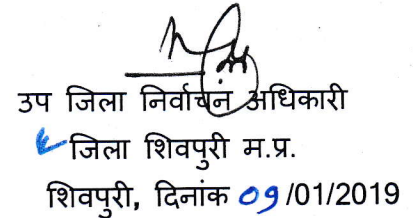 उप जिला निर्वाचन अधिकारी
जिला शिवपुरी म.प्र.
शिवपुरी, दिनांक 09/01/2019